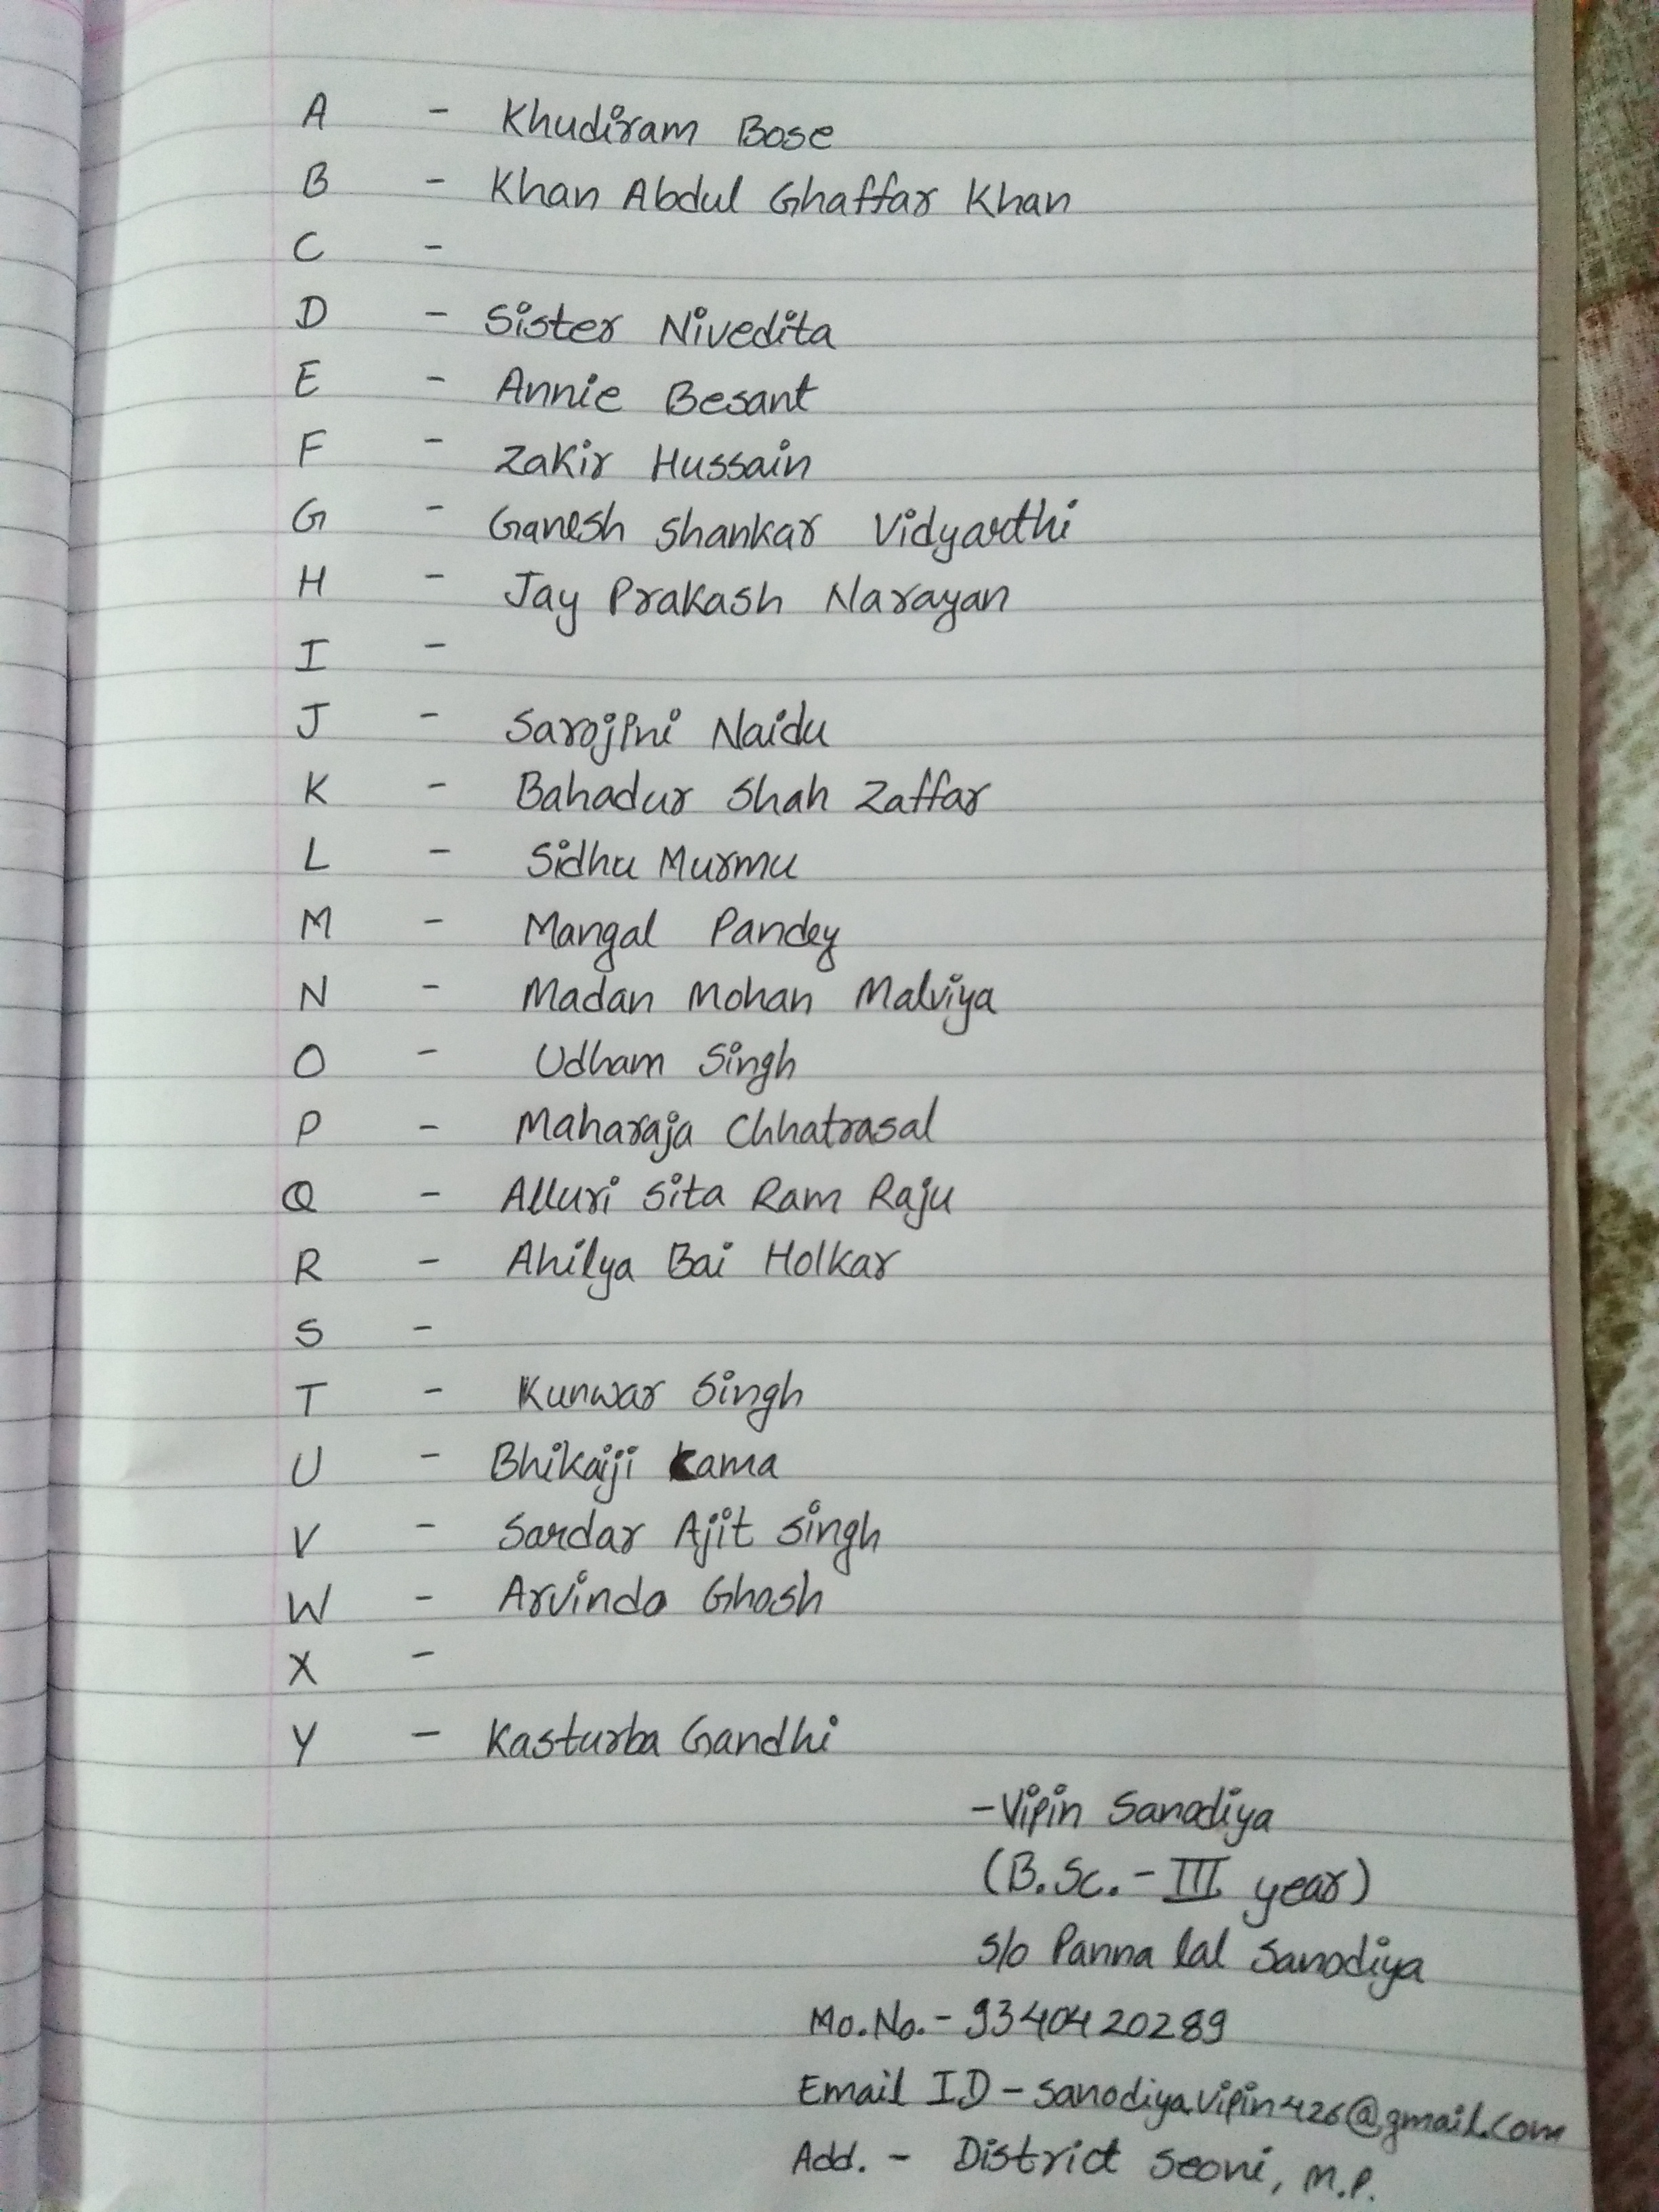 A - Khudiram Bose
B - Khan Abdul Ghaffar Khan
C -
D - Sister Nivedita
E - Annie Besant
F - Zakir Hussain
G - Ganesh Shankar Vidyarthi
H - Jay Prakash Narayan
I -
J - Sarojini Naidu
K - Bahadur Shah Zaffar
L - Sidhu Murmu
M - Mangal Pandey
N - Madan Mohan Malviya
O - Udham Singh
P - Maharaja Chhatrasal
Q - Alluri Sita Ram Raju
R - Ahilya Bai Holkar
S -
T - Kunwar Singh
U - Bhikaiji Kama
V - Sardar Ajit Singh
W - Arvindo Ghosh
X -
Y - Kasturba Gandhi
- Vipin Sanodiya
(B.Sc. - III year)
S/o Panna lal Sanodiya
Mo.No. - 9340420289
Email ID - sanodiya.vipin426@gmail.com
Add. - District Seoni, M.P.